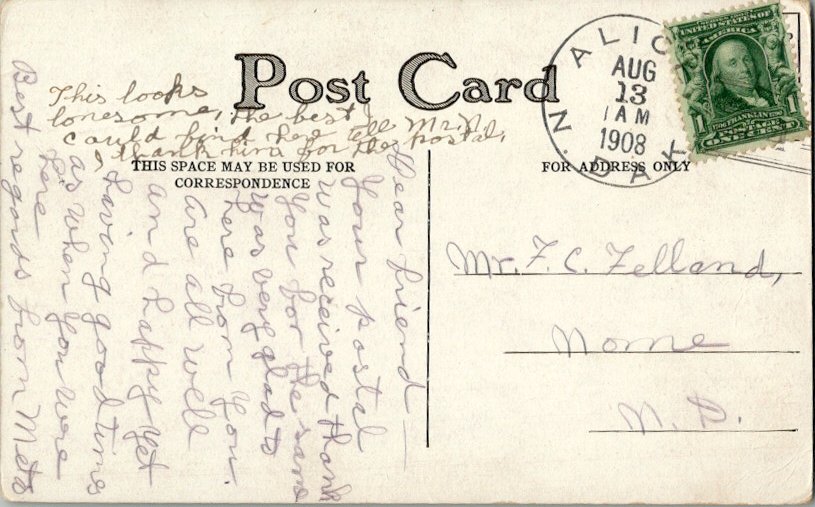 Post Card
This looks
lonesome, the best I
could find here tell Mr. N.
I thank him for the postal,
THIS SPACE MAY BE USED FOR
CORRESPONDENCE
FOR ADDRESS ONLY
ALIC
N. DAK
AUG
13
1 AM
1908
UNITED STATES OF
AMERICA
FRANKLIN
POSTAGE
1 ONE CENT 1
Mr. F. C. Felland,
Nome
N. D.
Dear friend —
Your postal
was received thank
you for the same
Was very glad to
here from you.
are all well
and happy yet
having good times
as when you were
here
Best regards from Meta